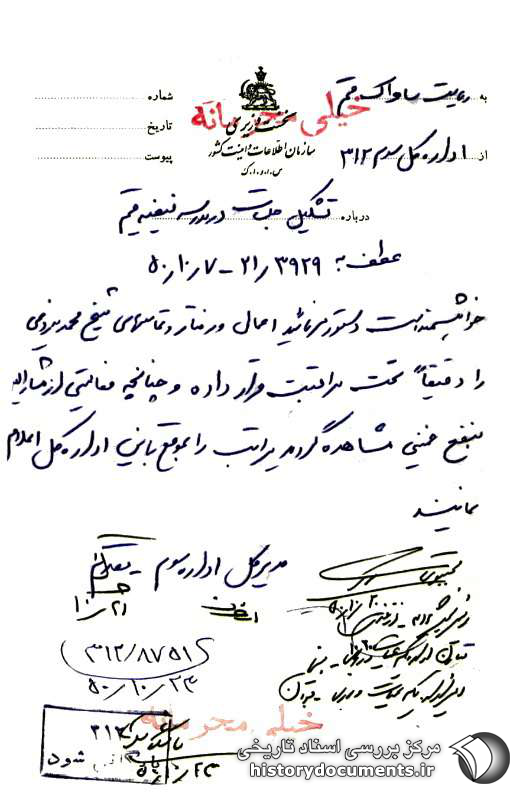 به ریاست ساواک قم
شماره
خیلی محرمانه
نخست وزیری
تاریخ
سازمان اطلاعات و امنیت کشور
از اداره کل سوم ۳۱۲
پیوست
س.ا.و.ا.ک
درباره تشکیل جلسات در مدرسه فیضیه قم
عطف به ۲۱/۳۹۲۹ - ۵۰/۱۰/۷
خواهشمند است دستور فرمائید اعمال و رفتار و تماسهای شیخ محمد یزدی
را دقیقاً تحت مراقبت قرار داده و چنانچه فعالیتی از مشارالیه
بنفع خمینی مشاهده گردید مراتب را بموقع باین اداره کل اعلام
نمایند
مدیرکل اداره سوم
۱۰/۲۱
۳۱۲/۸۷۵۱
۵۰/۱۰/۲۳
خیلی محرمانه
۳۱۲
شود
مرکز بررسی اسناد تاریخی
historydocuments.ir